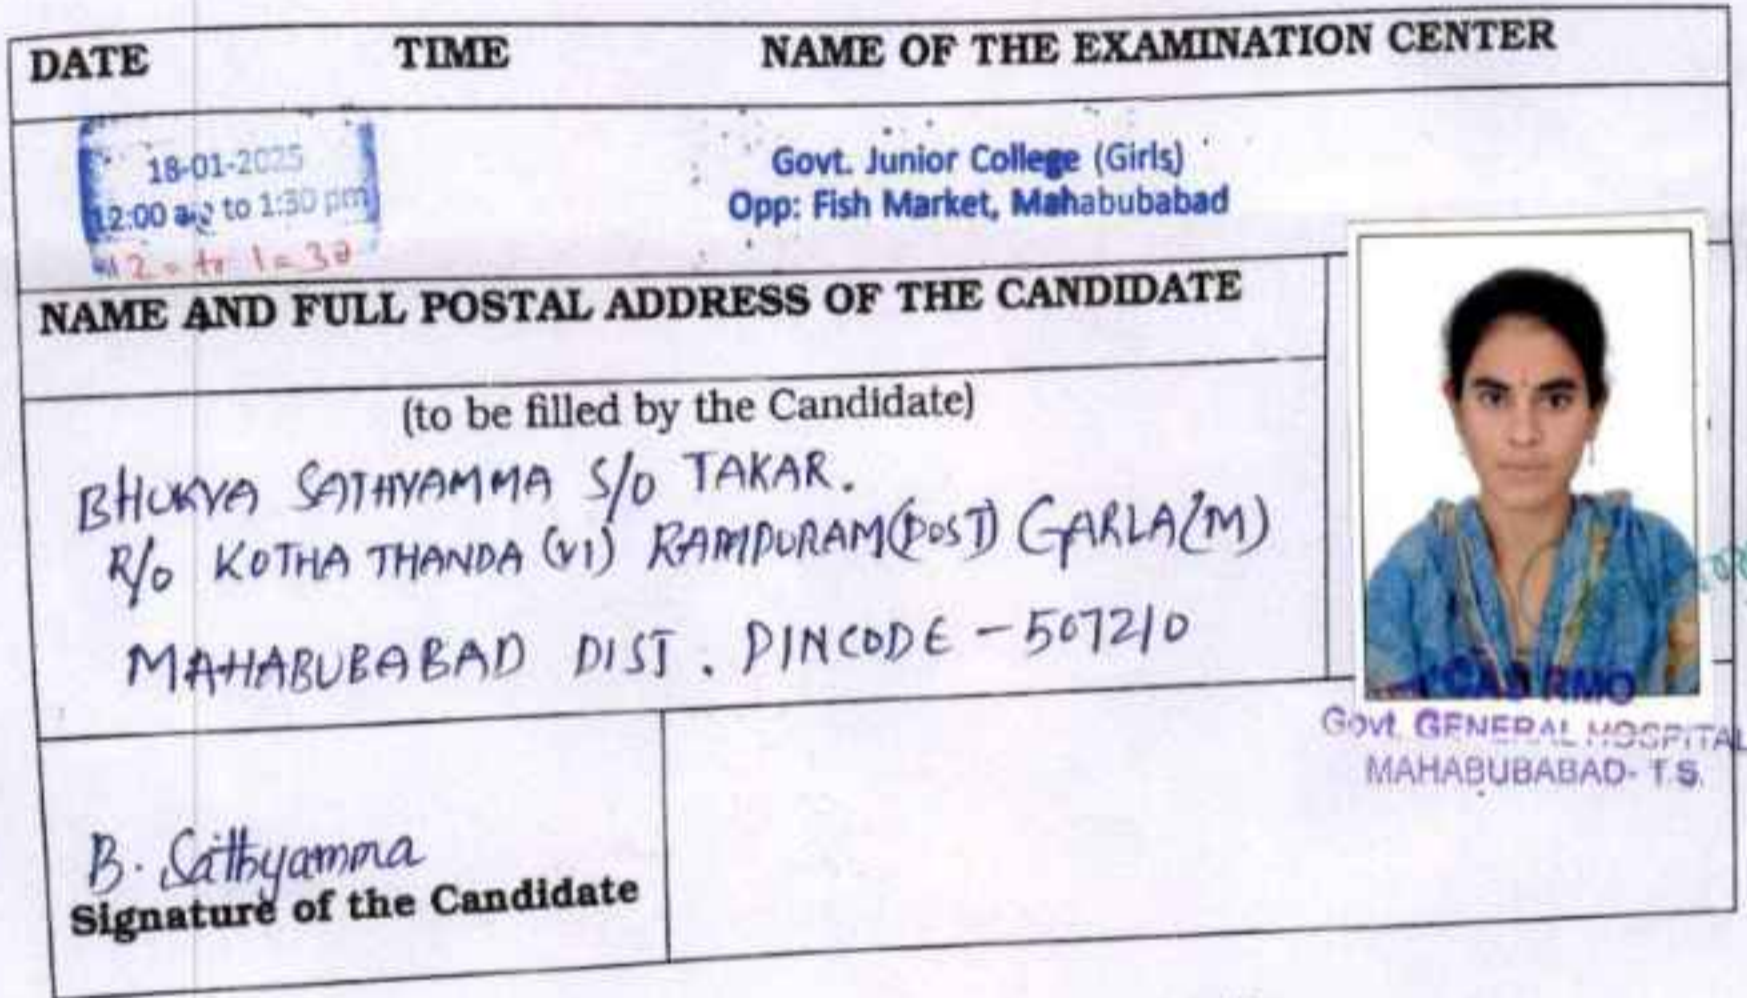 DATE TIME NAME OF THE EXAMINATION CENTER
18-01-2025
12:00 to 1:30 pm
12 = to 1 = 30
Govt. Junior College (Girls)
Opp: Fish Market, Mahabubabad
NAME AND FULL POSTAL ADDRESS OF THE CANDIDATE
(to be filled by the Candidate)
BHUKYA SATHYAMMA S/O TAKAR.
R/o KOTHA THANDA (VI) RAMPURAM (POST) GARLA (M)
MAHABUBABAD DIST. PINCODE - 507210
RMO
Govt. GENERAL HOSPITAL
MAHABUBABAD- T.S.
B. Sathyamma
Signature of the Candidate